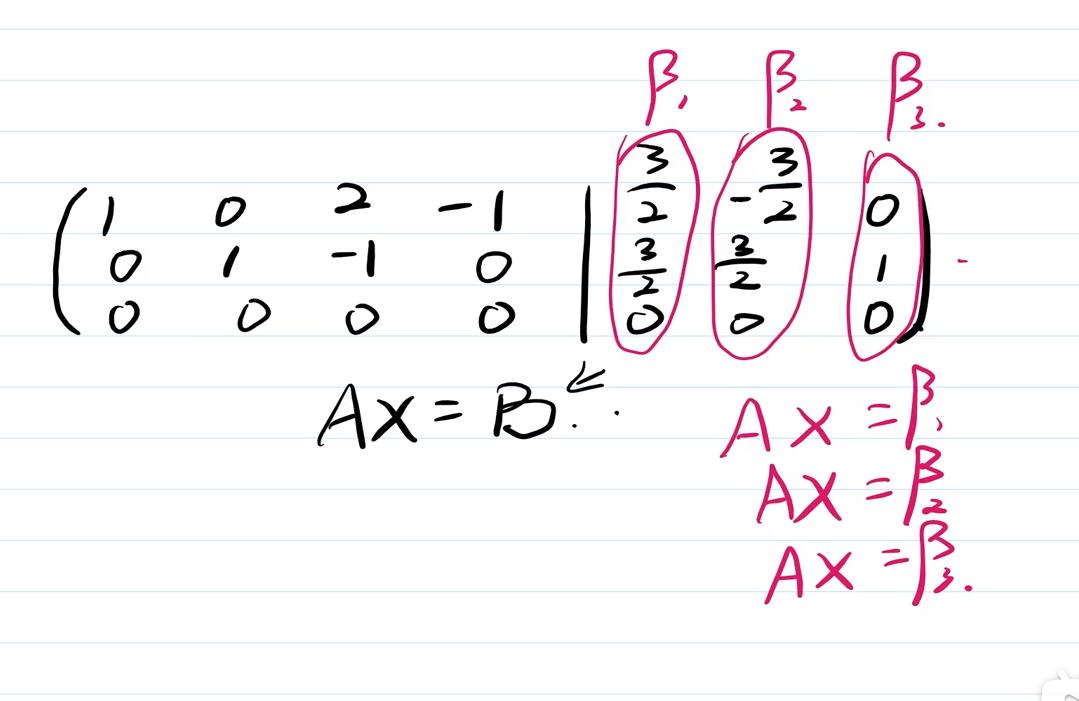 β₁ β₂ β₃.
( 1 0 2 -1 | 3/2 -3/2 0 )
0 1 -1 0 | 3/2 3/2 1
0 0 0 0 | 0 0 0
AX = B.
AX = β₁
AX = β₂
AX = β₃.